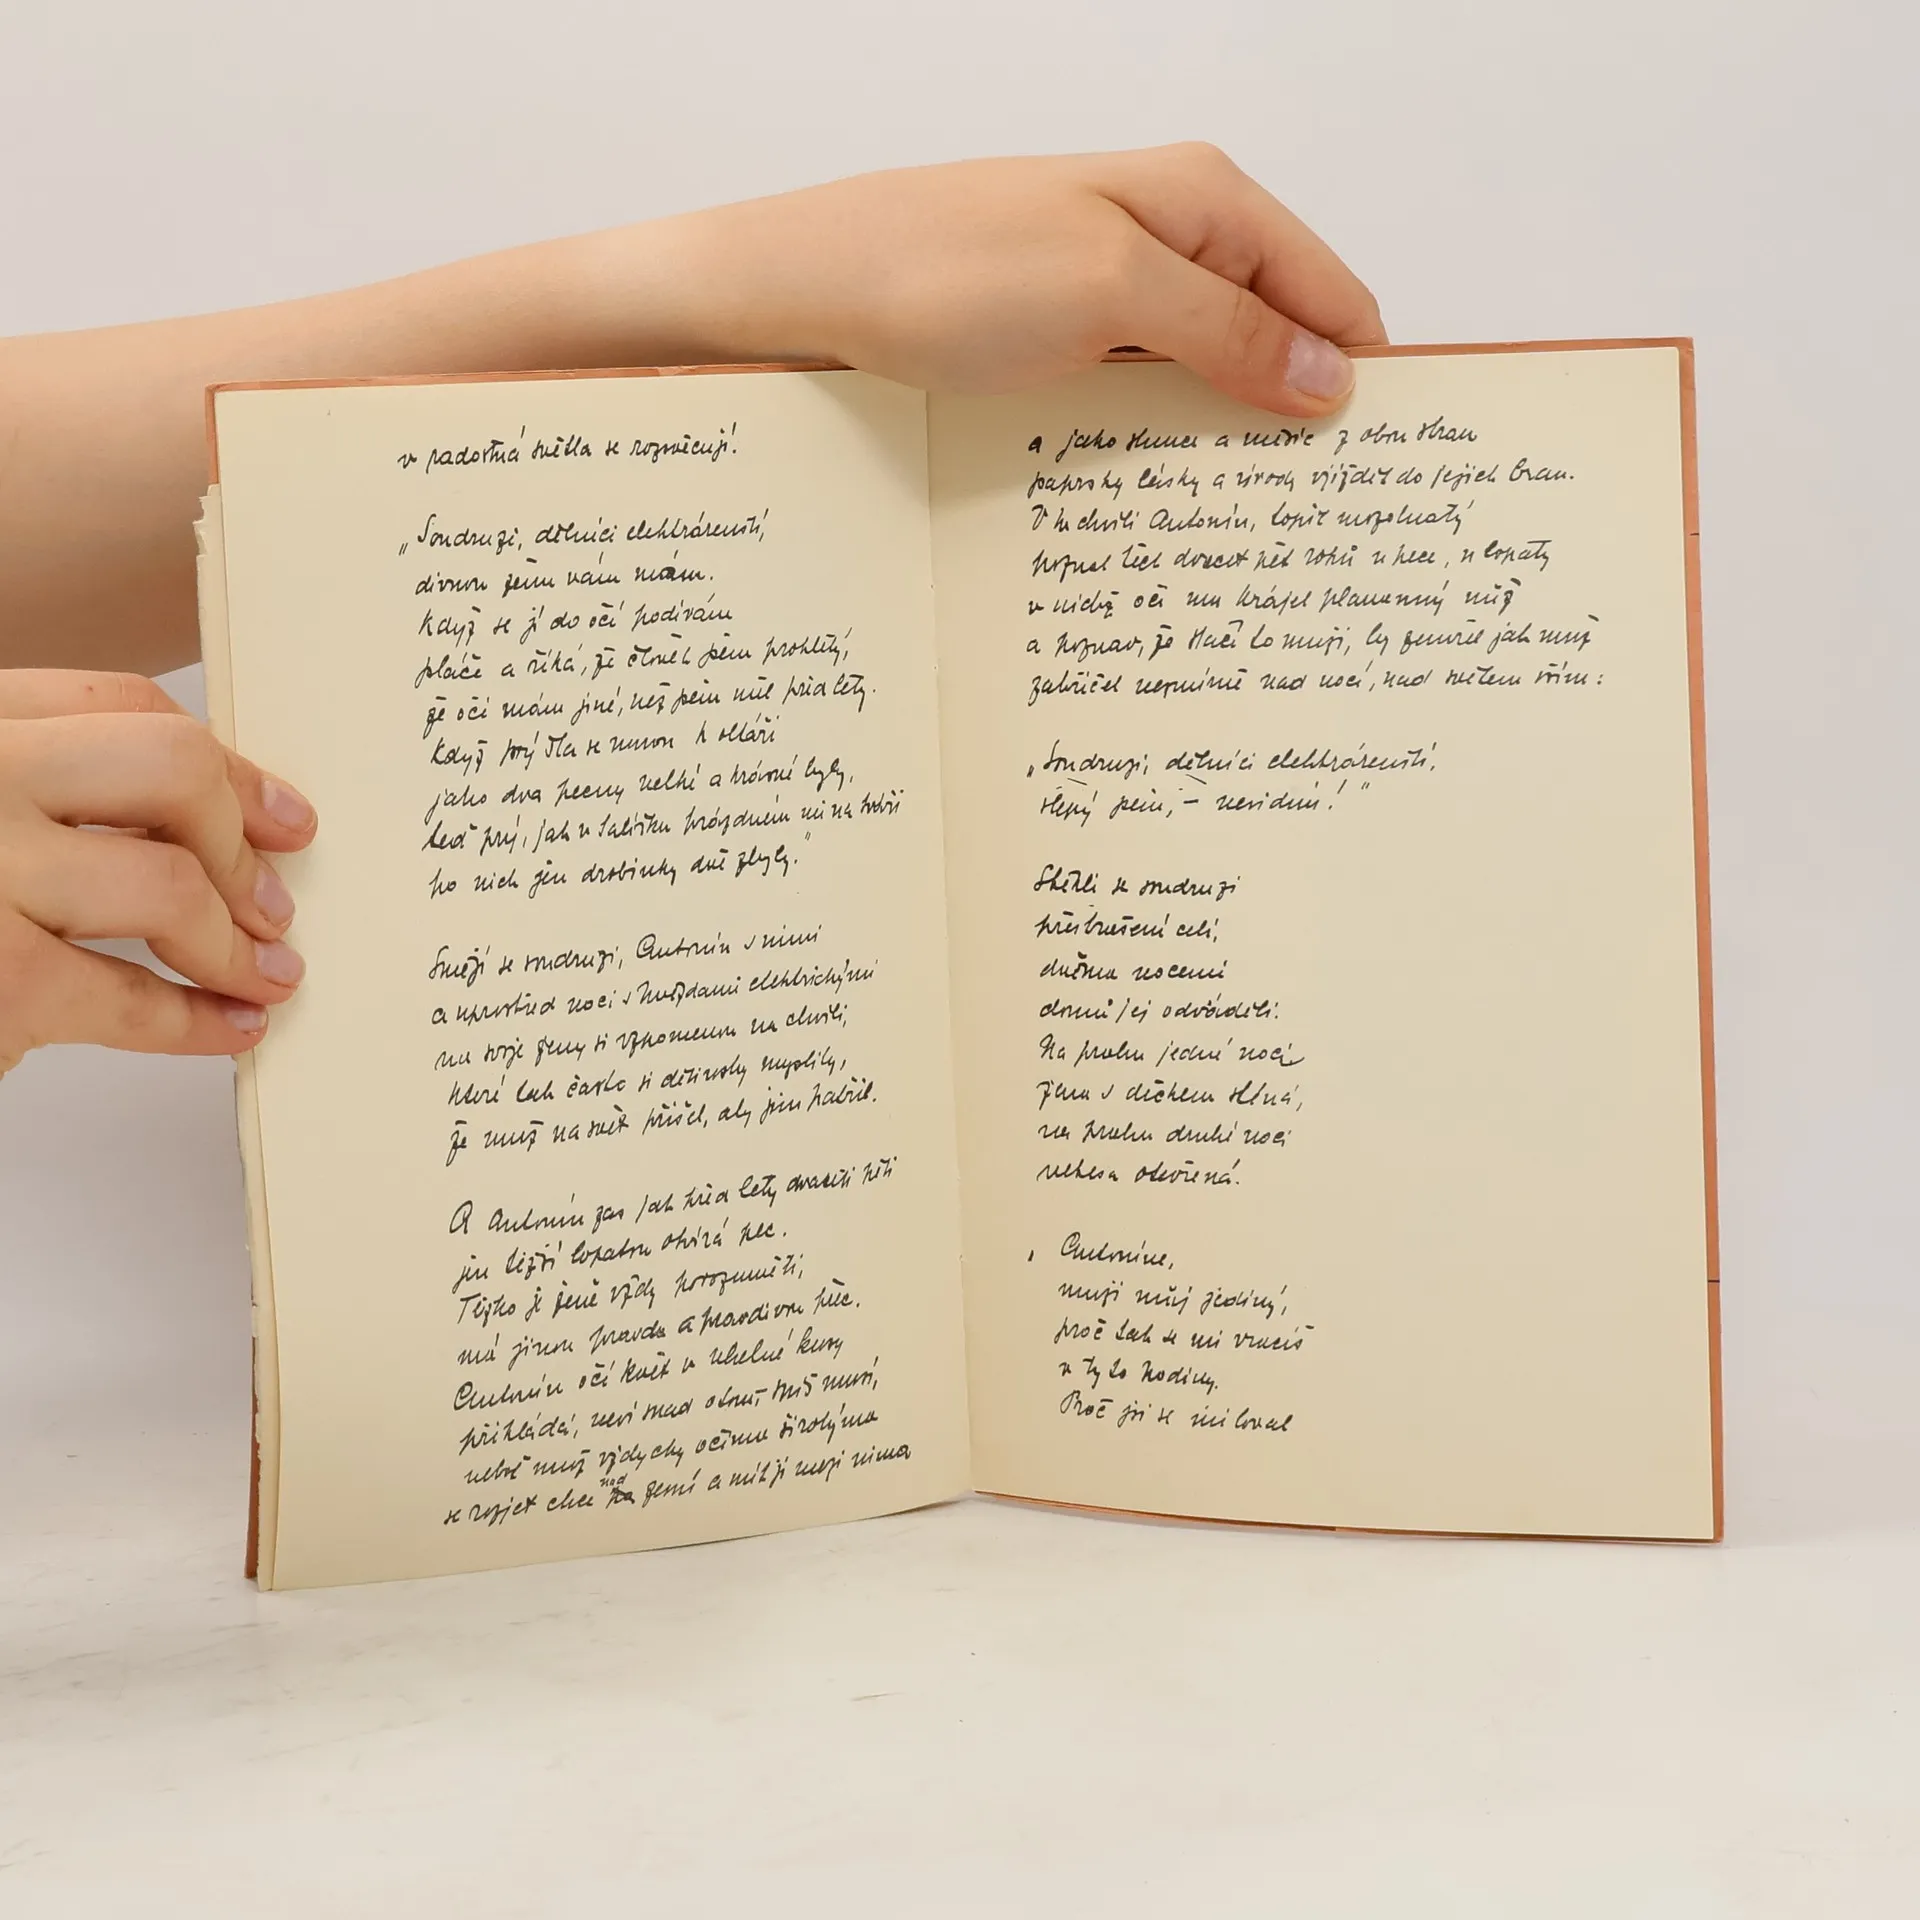 v radostná světla se rozsvěcují!
„Soudruzi, dělníci elektrárenští,
divnou ženu vám mám.
Když se jí do očí podívám
pláče a říká, že člověk jsem prokletý,
že oči mám jiné, než jsem měl před lety.
Když prý šla se mnou k oltáři
jako dva pecny velké a krásné byly,
teď prý, jak v šatlíčku prázdném mi na tváři
po nich jen drobinky dvě zbyly.“
Smějí se soudruzi, Antonín s nimi
a uprostřed noci s hvězdami elektrickými
na svoje ženy si vzpomenou na chvíli,
které tak často si dětinsky myslily,
že muž na svět přišel, aby jim patřil.
A Antonín zas jak před lety dvaceti pěti
jen těžší lopatou otvírá pec.
Těžko je ženě vždy porozuměti,
má jinou pravdu a pravdivou přec.
Antonín očí květ v uhelné kusy
přikládá, neví snad o tom, spíš musí,
neboť muž vždycky očima širokýma
se rozjet chce nad zemí a mít ji mezi nima
a jako slunce a měsíc z obou stran
paprsky lásky a úrody vjíždět do jejich bran.
V tu chvíli Antonín, topič mozolnatý
poznal těch dvacet pět roků u pece, u lopaty
v nichž oči mu krájel plamenný nůž
a poznav, že stačí to muži, by zemřel jak muž
zakřičel nesmírně nad nocí, nad světem vším:
„Soudruzi, dělníci elektrárenští,
slepý jsem, – nevidím!“
Sběhli se soudruzi
přestrašení celí,
dvěma nocemi
domů jej odváděli.
Na prahu jedné noci
žena s děckem sténá,
na prahu druhé noci
nebesa otevřená.
„Antoníne,
muži můj jediný,
proč tak se mi vracíš
v tyto hodiny.
Proč jsi se miloval